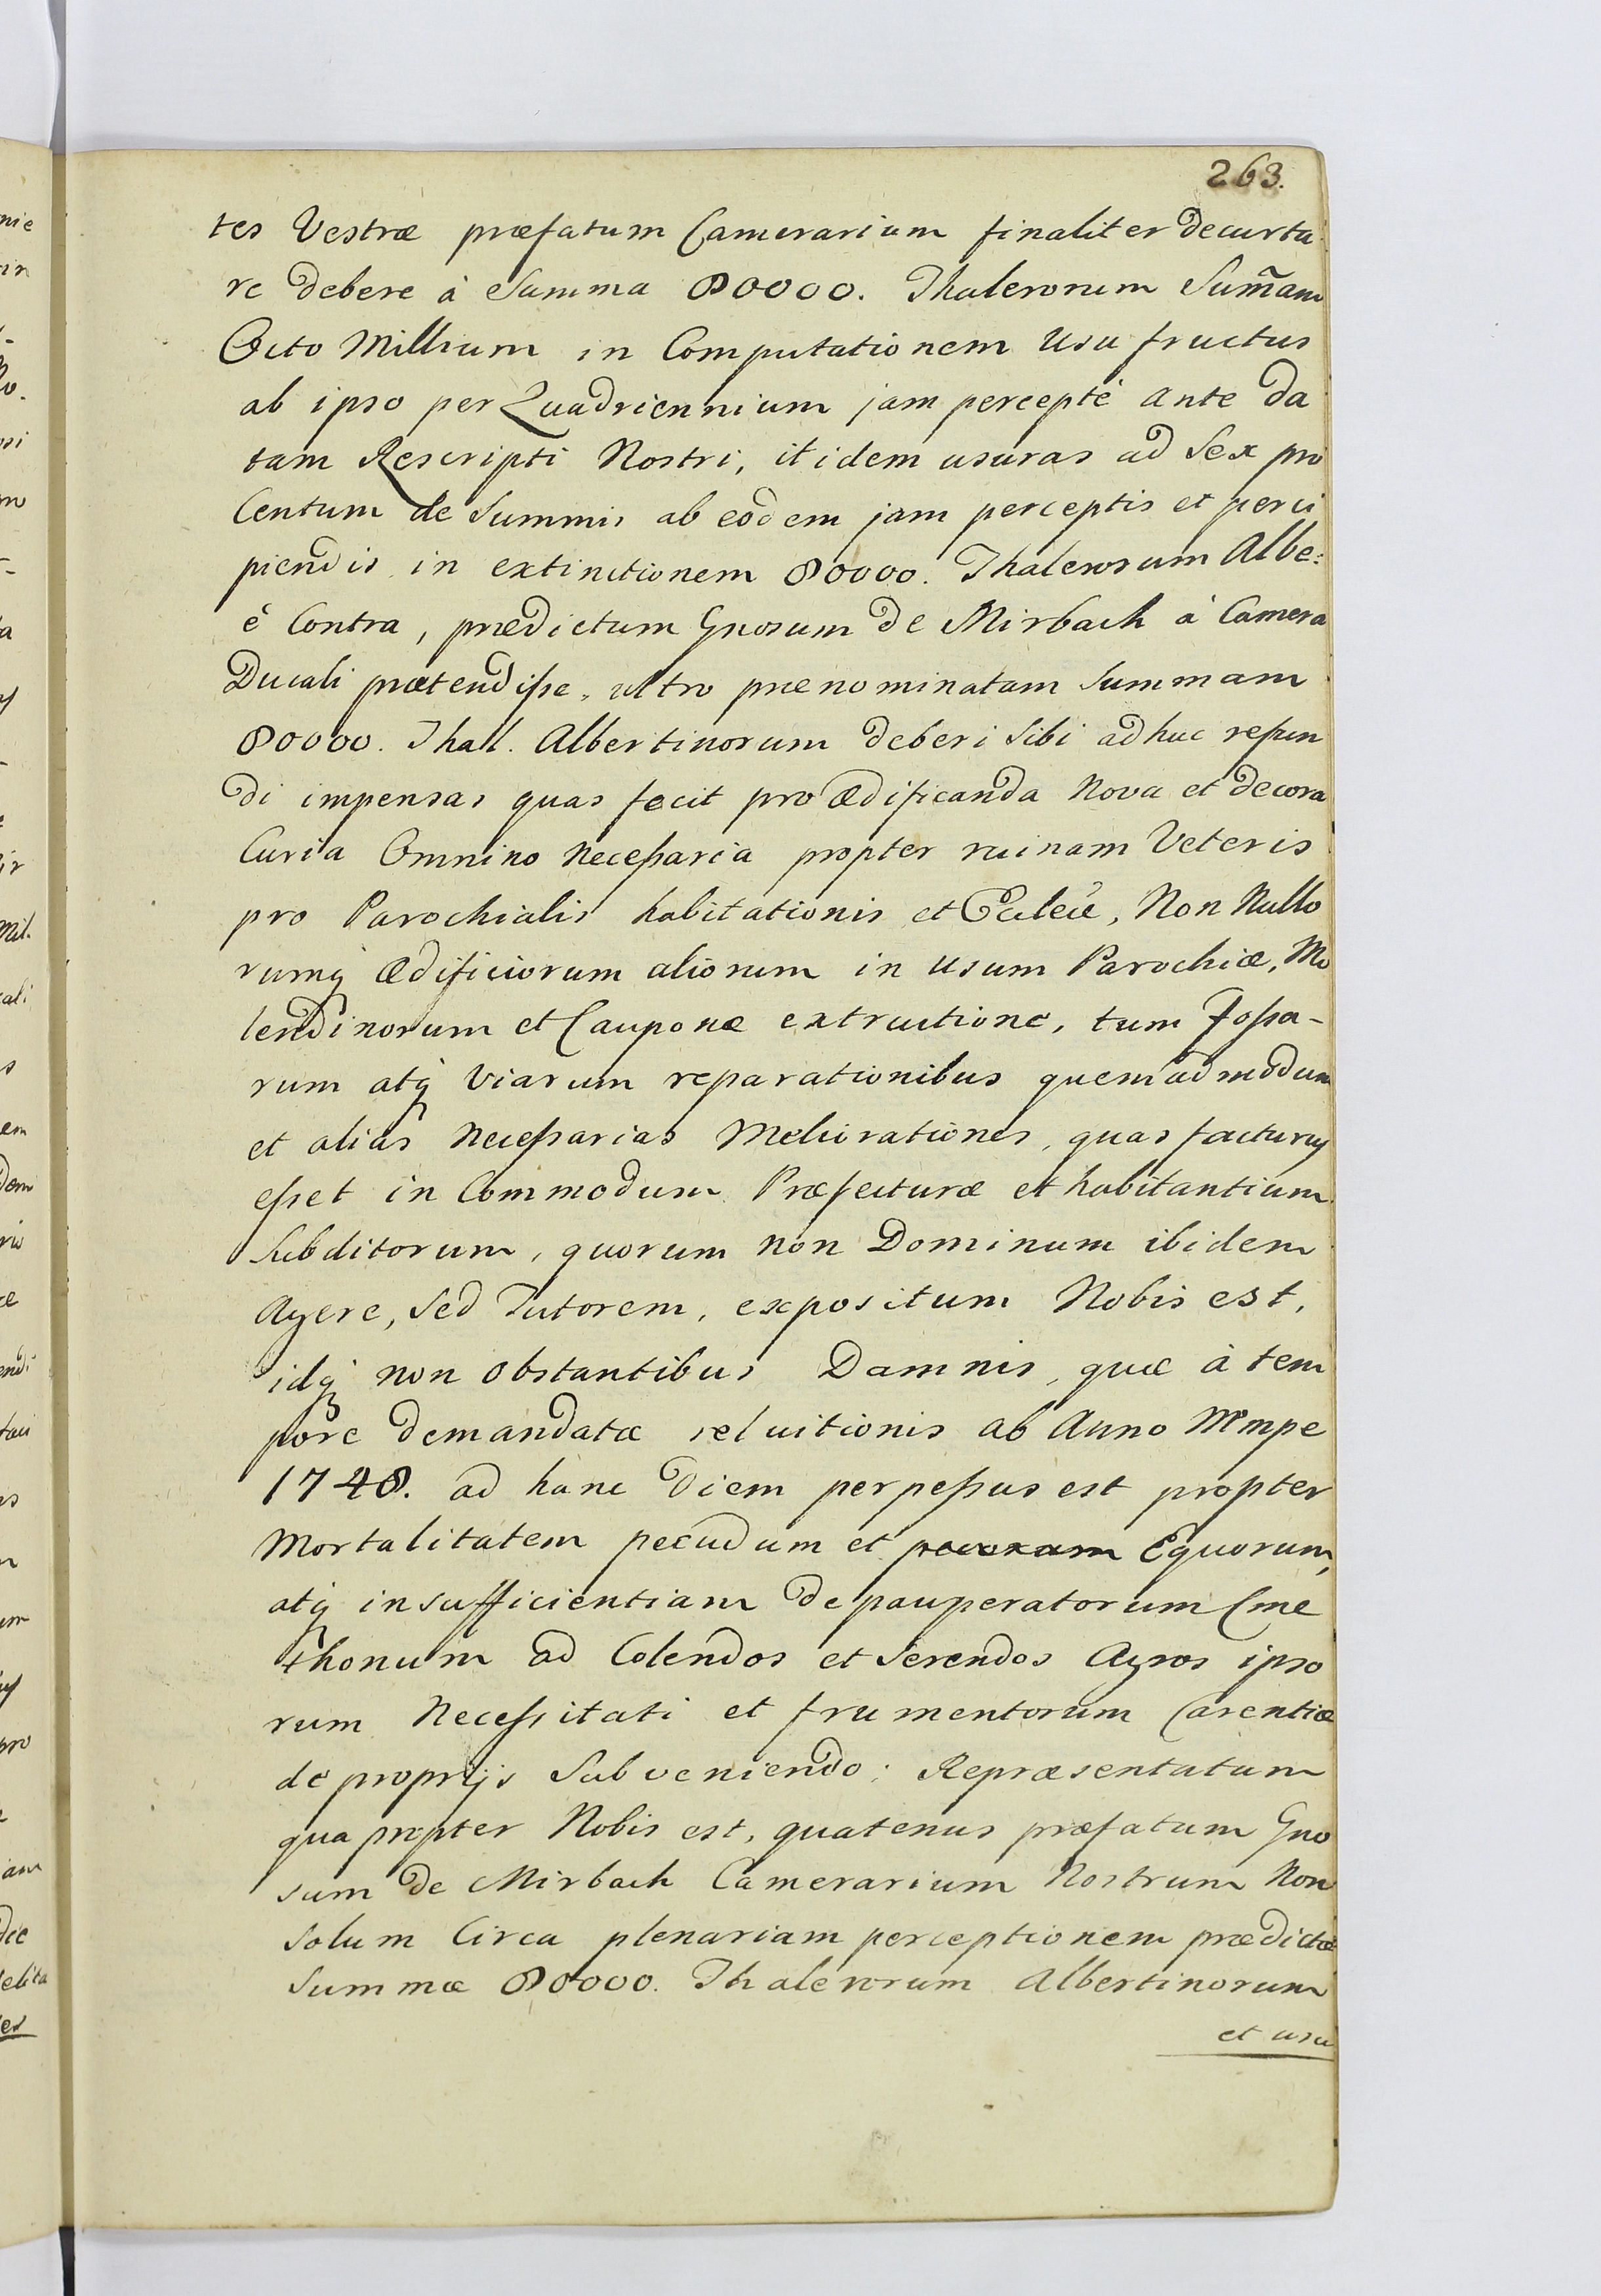 263.
tes Vestræ præfatum Camerarium finaliter decurta
re debere à Summa 80000. Thalerorum Sum̃am
Octo Millium in Computationem Usu fructus
ab ipso per Quadriennium jam percepté ante da
tam Rescripti Nostri, itidem usuras ad Sex pro
Centum de Summis ab eodem jam perceptis et perci
piendis in extinctionem 80000. Thalerorum Albe:
é Contra, prædictum Gnosum de Mirbach à Camera
Ducali prætendisse, ultro prænominatam Summam
80000. Thal. Albertinorum deberi Sibi adhuc refun
di impensas quas fecit pro Ædificanda Nova et decora
Curia Omnino Necessaria propter ruinam Veteris
pro Parochialis habitationis et Nonnullo
rumq Ædificiorum aliorum in Usum Parochiæ, Mo
lendinorum et Cauponæ extructione, tum Fossa-
rum atq Viarum reparationibus quemadmodum
et alias Necessarias Meliorationes, quas facturus
esset in Commodum Præfecturæ et habitantium
Subditorum, quorum non Dominum ibidem
Agere, Sed Tutorem, expositum Nobis est,
idq non obstantibus Damnis, quæ à tem
pore demandatæ reluitionis ab Anno Mmpe
1748. ad hanc Diem perpessus est propter
Mortalitatem pecudum et Equorum,
atq insufficientiam depauperatorum Cme
thonum ad Colendos et Serendos Agros ipso
rum Necessitati et frumentorum Carentiæ
de proprijs Subveniendo; Repræsentatum
qua propter Nobis est, quatenus præfatum Gno
sum de Mirbach Camerarium Nostrum Non
Solum Circa plenariam perceptionem prædictæ
Summæ 80000. Thalerorum Albertinorum
et usu